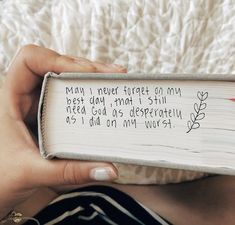 May I never forget on my
best day, that I still
need God as desperately
as I did on my worst.